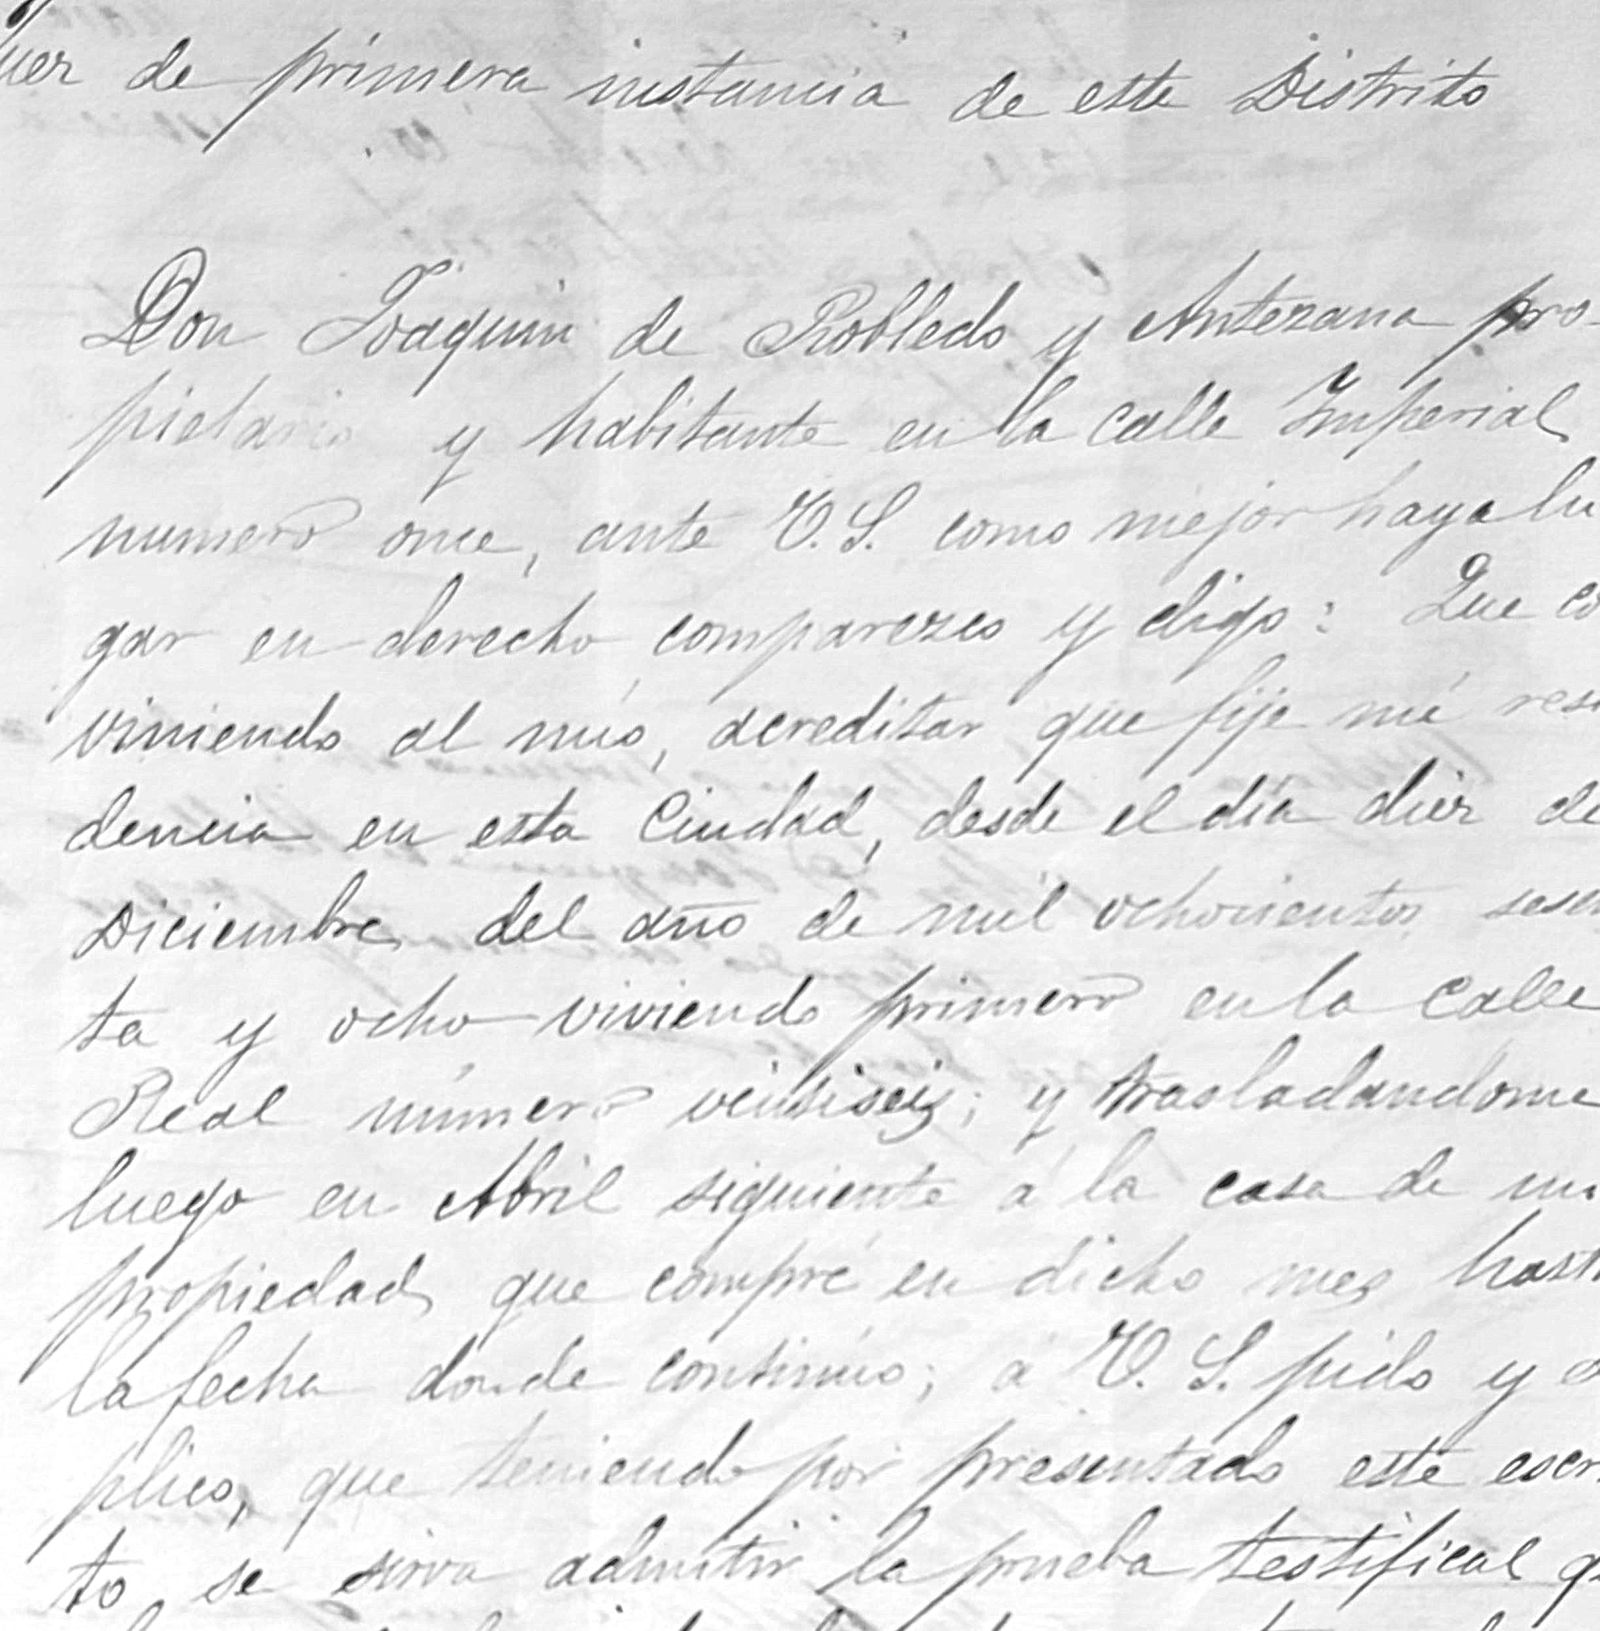 uez de primera instancia de este Distrito
Don Joaquin de Robledo y Antezana pro-
pietario y habitante en la calle Imperial
numero once, ante V.S. como mejor haya lu
gar en derecho comparezco y digo: Que co
viniendo al mío, acreditar que fije mi resi
dencia en esta Ciudad, desde el día diez de
Diciembre del año de mil ochocientos sesen
ta y ocho viviendo primero en la calle
Real número veintiseis; y trasladandome
luego en Abril siguiente á la casa de mi
propiedad que compré en dicho mes hasta
la fecha donde continúo; á V. S. pido y
plico, que teniendo por presentado este escri
to se sirva admitir la prueba testifical q